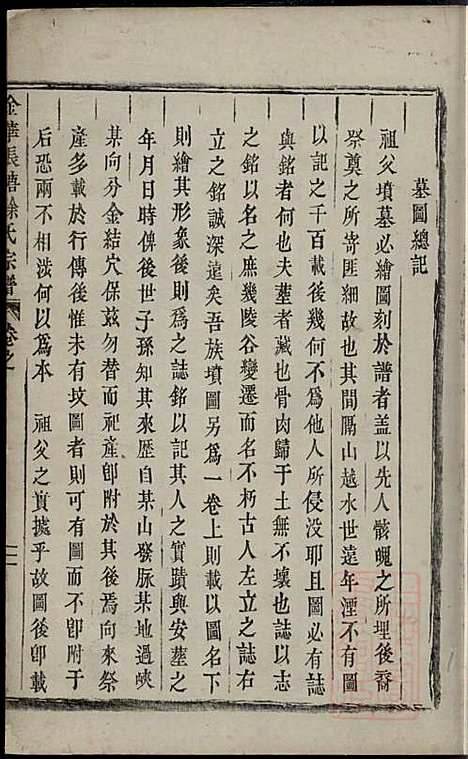 墓圖總記
祖父墳墓必繪圖刻於譜者葢以先人骸魄之所埋後裔
祭奠之所寄匪細故也其間隔山越水世遠年湮不有圖
以記之千百載後幾何不為他人所侵没耶且圖必有誌
與銘者何也夫塟者藏也骨肉歸于土無不壞也誌以志
之銘以名之庶幾陵谷變遷而名不朽古人左立之誌右
立之銘誠深遠矣吾族墳圖另為一卷上則載以圖名下
則繪其形象後則為之誌銘以記其人之實蹟與安塟之
年月日時俾後世子孫知其來歷自某山發脉某地過峽
某向分金結穴保兹勿替而祀產卽附於其後焉向來祭
產多載於行傳後惟未有坟圖者則可有圖而不卽附于
后恐兩不相涉何以為本 祖父之實據乎故圖後卽載
金華長塘徐氏宗譜 卷之